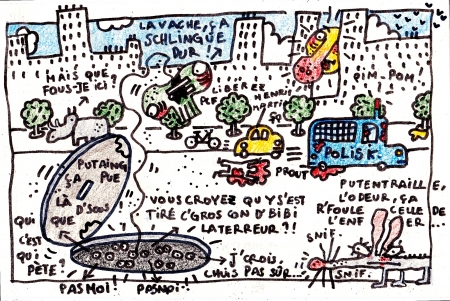 LA VACHE, ÇA
SCHLINGUE
DUR!
MAIS QUE
FOUS-JE ICI?
LIBÉREZ
HENRI
MARTIN
PIM-POM!
POLISK
PROUT
PUTAING,
ÇA PUE
LÀ
D'SOUS!
QUI
C'EST
QUI
PÈTE?
QUE
VOUS CROYEZ QU'Y S'EST
TIRÉ C'GROS CON D'BIBI
LATERREUR?!
J'CROIS,
CHUIS PAS SÛR...
PUTENTRAILLE,
L'ODEUR, ÇA
R'FOULE CELLE DE
L'ENFER...
SNIF.
SNIF.
PAS MOI!
PAS MOI!